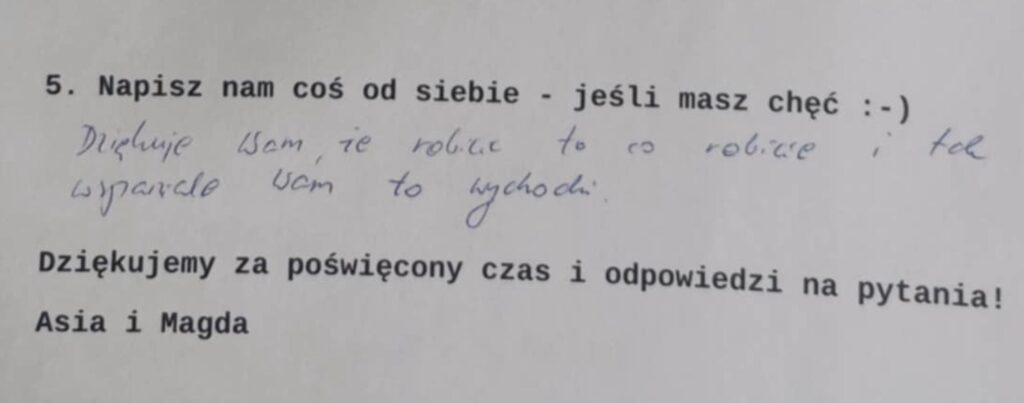 5. Napisz nam coś od siebie - jeśli masz chęć :-)
Dziękuję Wam, że robicie to co robicie i tak
wspaniale Wam to wychodzi.
Dziękujemy za poświęcony czas i odpowiedzi na pytania!
Asia i Magda